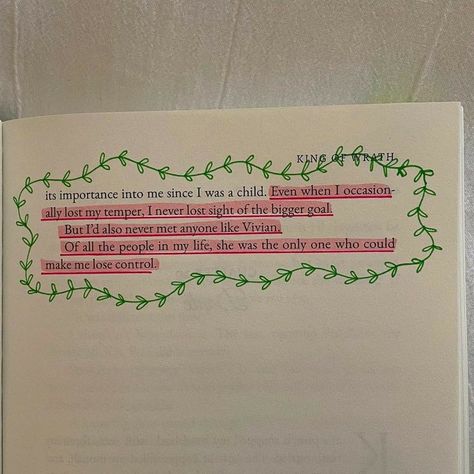 KING OF WRATH
its importance into me since I was a child. Even when I occasion-
ally lost my temper, I never lost sight of the bigger goal.
But I'd also never met anyone like Vivian.
Of all the people in my life, she was the only one who could
make me lose control.